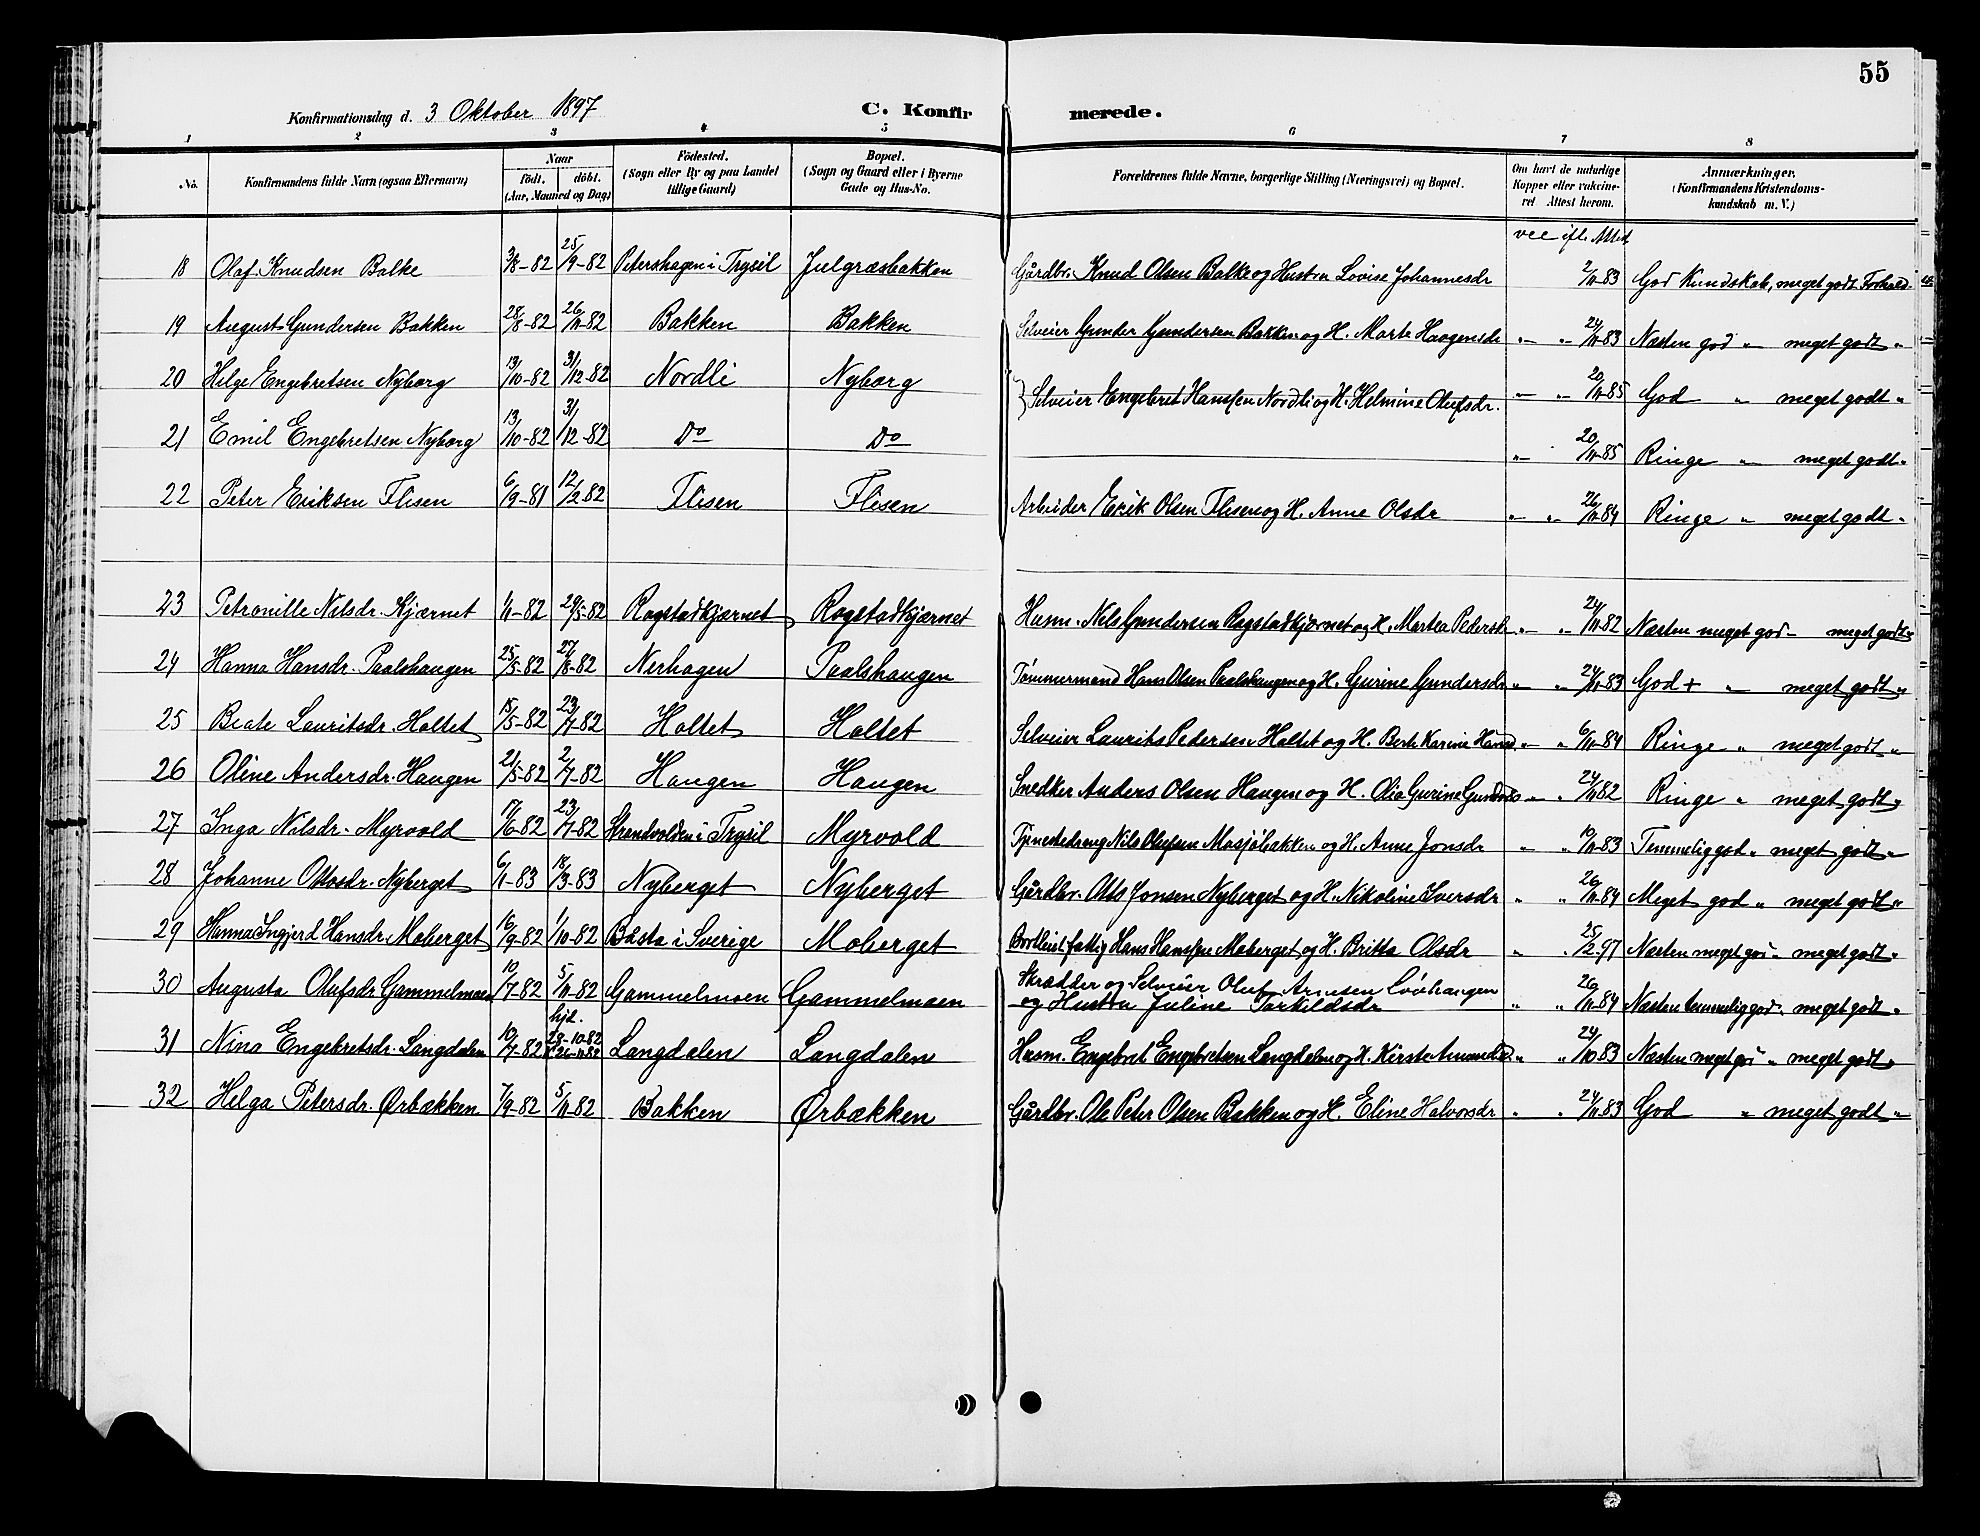 55
Konfirmationsdag d. 3 Oktober 1897 C. Konfir merede.
1 2 3 4 5 6 7 8
No. Konfirmandens fulde Navn (ogsaa Efternavn) Naar født. døbt. (Aar, Maaned og Dag) Fødested. (Sogn eller By og paa Landet tillige Gaard) Bopæl. (Sogn og Gaard eller i Byerne Gade og Hus-No. Forældrenes fulde Navne, borgerlige Stilling (Næringsvei) og Bopæl. Om havt de naturlige Kopper eller vakcineret Attest herom. Anmærkninger. (Konfirmandens Kristendomskundskab m. V.)
vcc ifl. Attest
18 Olaf Knudsen Balke 3/8-82 25/9-82 Petershagen i Trysil Julgræsbakken Gårdbr. Knud Olsen Balke og Hustru Lovise Johannesdr 2/11-83 God Kundskab, meget godt Forhold
19 August Gundersen Bakken 28/8-82 26/11-82 Bakken Bakken Selveier Gunder Gundersen Bakken og H. Marte Haagensdr " " 24/11-83 Næsten god " meget godt "
20 Helge Engebretsen Nyborg 13/10-82 31/12-82 Nordli Nyborg } Selveier Engebret Hanssen Nordli og H. Helmine Olufsdr. " " 20/11-85 God " meget godt "
21 Emil Engebretsen Nyborg 13/10-82 31/12-82 Do Do " 20/11-85 Ringe " meget godt "
22 Peter Eriksen Flisen 6/9-81 12/2-82 Flisen Flisen Arbeider Erik Olsen Flisen og H. Anne Olsdr " " 26/11-84 Ringe " meget godt "
23 Petronille Nilsdr. Kjærnet 1/11-82 29/5-82 Rogstadkjærnet Rogstadkjærnet Husm. Nils Gundersen Rogstadkjærnet og H. Martea Pedersdr " " 24/11-82 Næsten meget god " meget godt "
24 Hanna Hansdr. Paalshaugen 25/5-82 27/8-82 Nerhagen Paalshaugen Tømmermand Hans Olsen Paalshaugen og H. Gurine Gundersdr " " 24/11-83 God + " meget godt "
25 Beate Lauritsdr. Holtet 15/5-82 23/7-82 Holtet Holtet Selveier Laurits Pedersen Holtet og H. Berte Karine Hansd " " 6/11-84 Ringe " meget godt "
26 Oline Andersdr. Haugen 21/5-82 2/7-82 Haugen Haugen Snedker Anders Olsen Haugen og H. Olia Gurine " " 24/11-82 Ringe " meget godt "
27 Inga Nilsdr. Myrvold 17/6-82 23/7-82 Strandvolden i Trysil Myrvold Tjenestedreng Nils Olufsen Masjøbakken og H. Anne Jonsdr " " 10/11-83 Temmelig god " meget godt "
28 Johanne Ottosdr. Nyberget 6/1-83 18/3-83 Nyberget Nyberget Gårdbr. Otto Jonsen Nyberget og H. Nikoline Iversdr " " 26/11-84 Meget god " meget godt "
29 Hanna Ingjerd Hansdr. Moberget 16/9-82 1/10-82 Båsta i Sverige Moberget fattig Hans Hanssen Moberget og H. Britta Olsdr " " 25/2-97 Næsten meget god " meget godt "
30 Augusta Olufsdr Gammelmoen 10/7-82 5/11-82 Gammelmoen Gammelmoen Skrædder og Selveier Oluf Arnesen Løvhaugen
og Hustru Juline Torkildsdr " " 26/11-84 Næsten temmelig god " meget godt "
31 Nina Engebretsdr. Langdalen 10/7-82 hjd. 23-10-82 26-11-82 Langdalen Langdalen Husm. Engebret Engebretsen Langdalen og H. Kirste Amundsd " " 24/10-83 Næsten meget god " meget godt "
32 Helga Petersdr. Ørbækken 7/9-82 5/11-82 Bakken Ørbækken Gårdbr. Ole Peter Olsen Bakken og H. Eline Halvorsdr " " 24/11-83 God " meget godt "